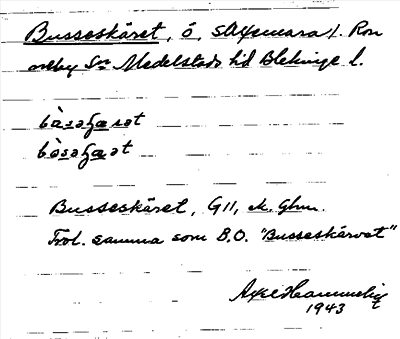 Busseskäret, ö, s Axemara f. Ron
neby Sn Medelstads hd Blekinge l.
bàsaʃæret
bòsaʃæret
Busseskäret, G11, ek. Ghm.
Trol. samma som B.O. "Busseskärvet"
Axel Hammelig
1943